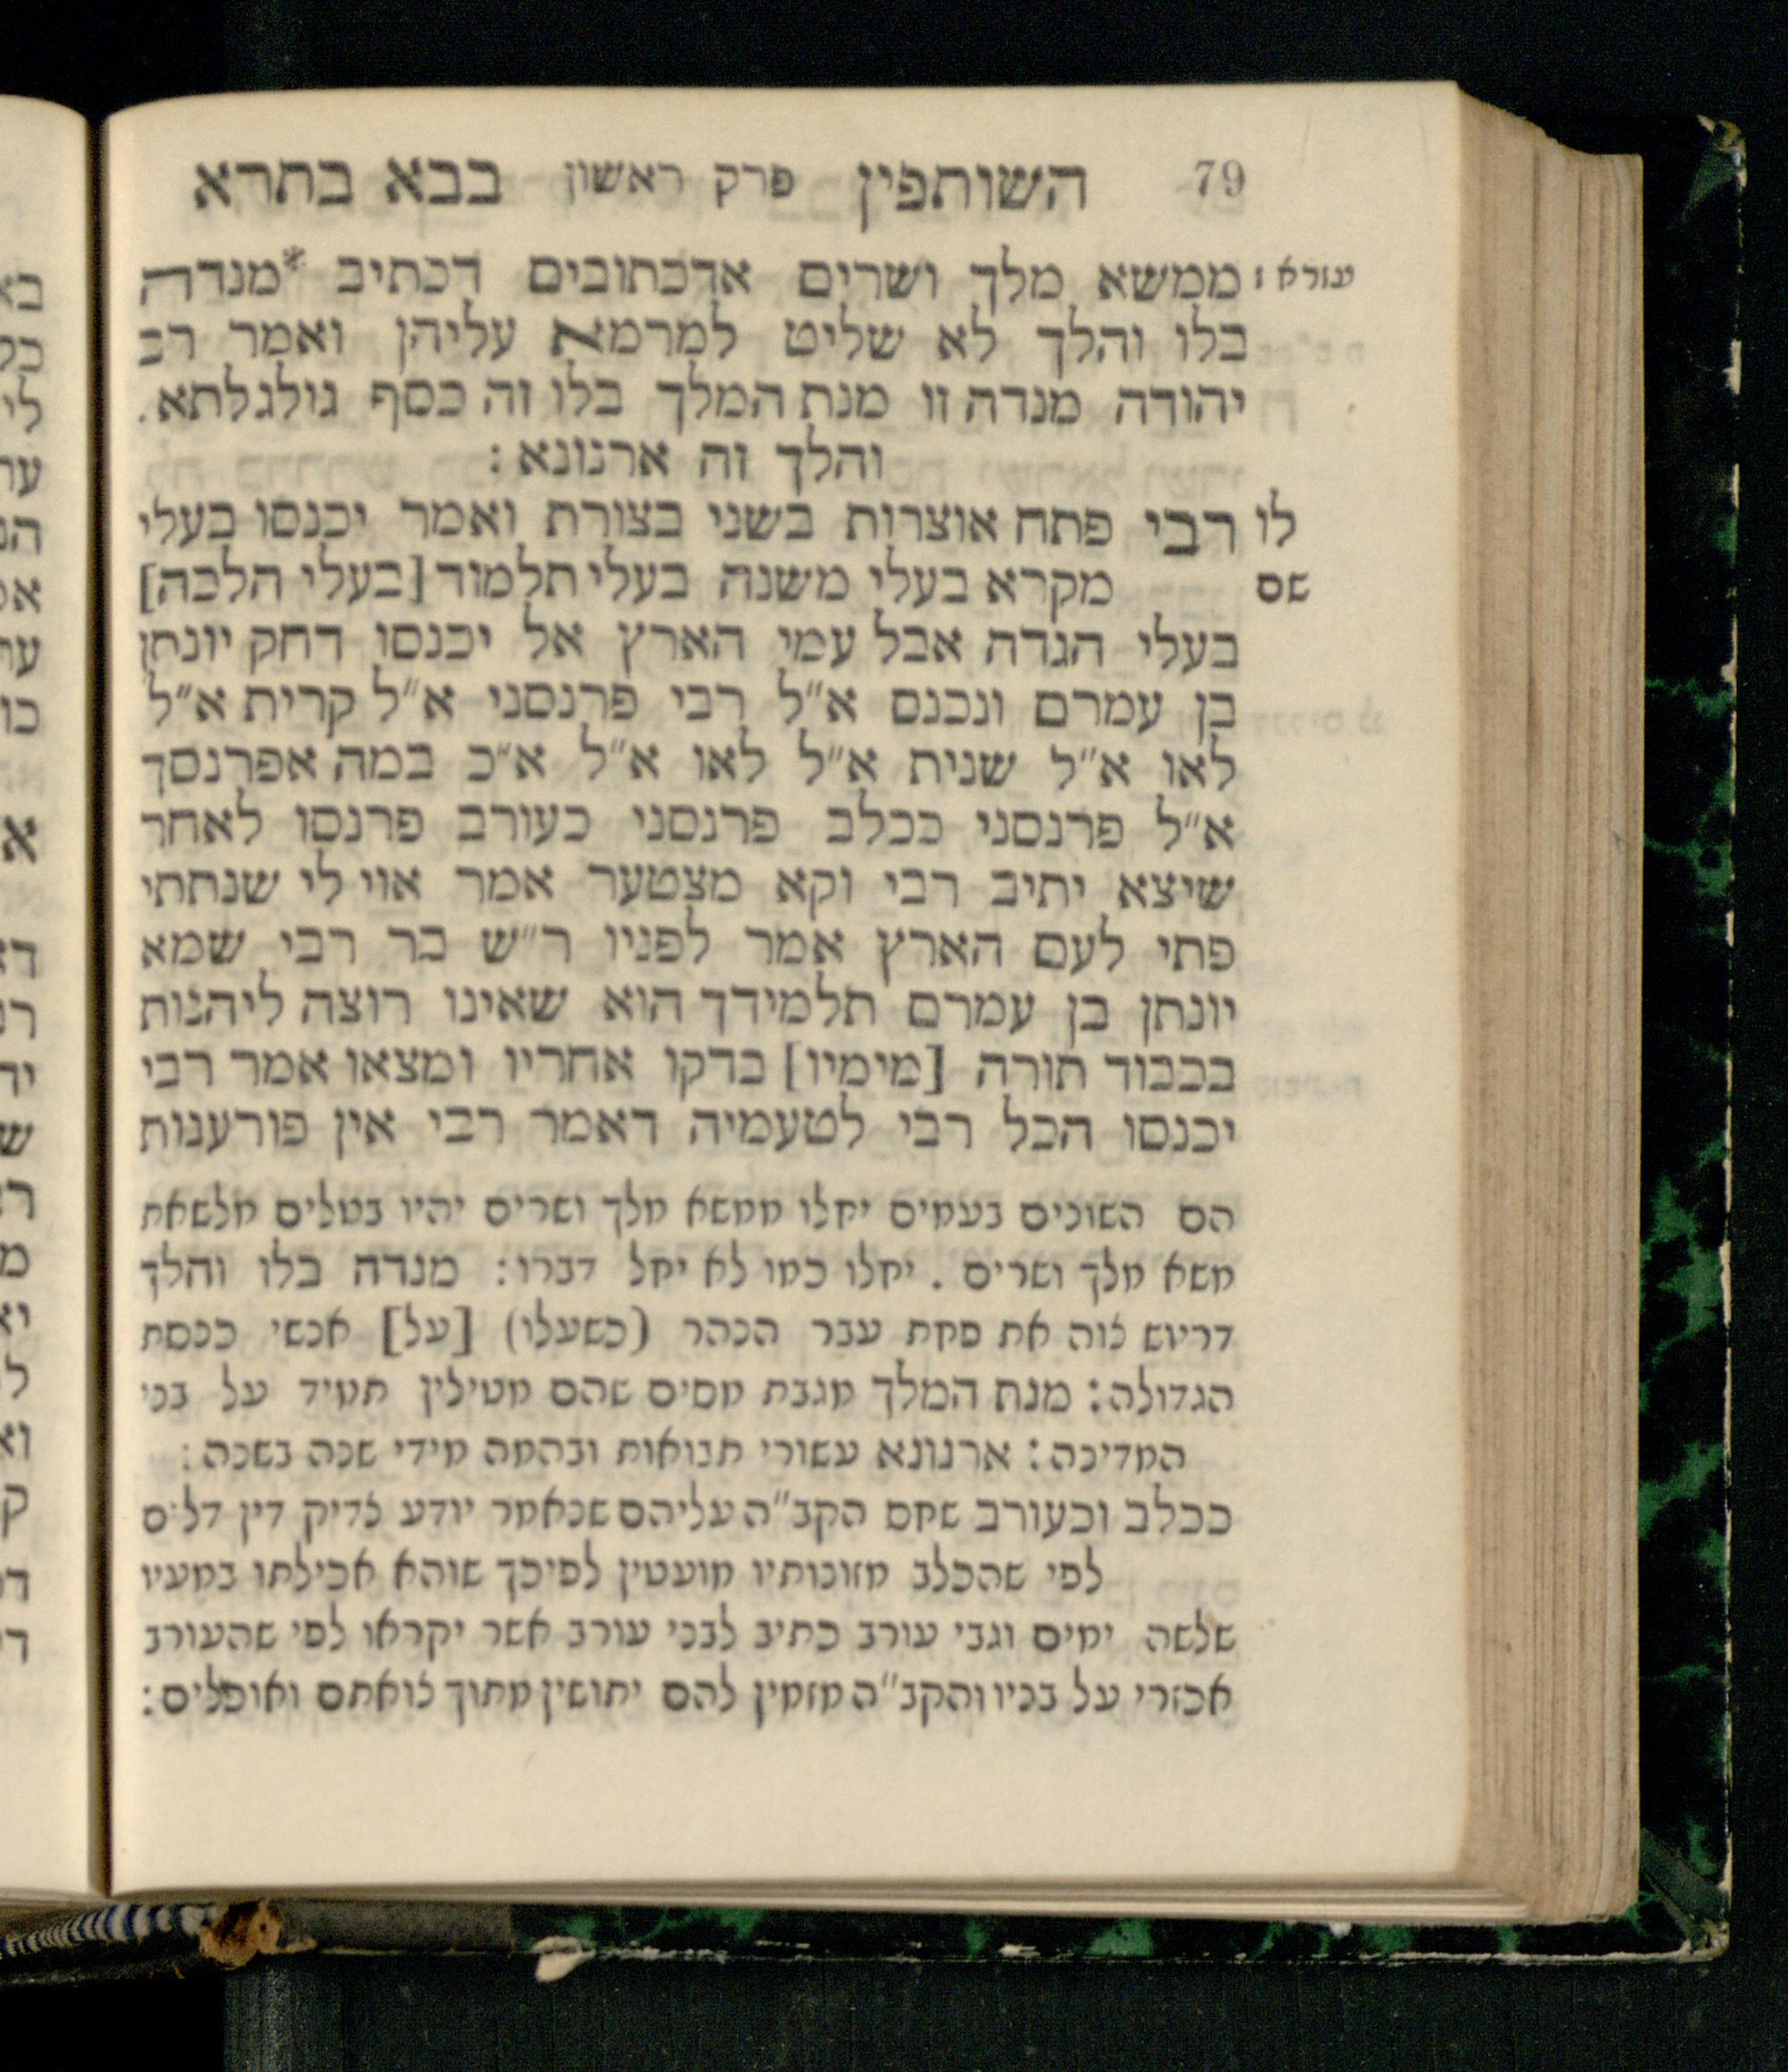 79 השותפין פרק ראשון בבא בתרא
עזרא ז
ממשא מלך ושרים אדכתובים דכתיב *מנדה
בלו והלך לא שליט למרמא עליהן ואמר רב
יהודה מנדה זו מנת המלך בלו זה כסף גולגלתא.
והלך זה ארנונא:
לו רבי פתח אוצרות בשני בצורת ואמר יכנסו בעלי
שם מקרא בעלי משנה בעלי תלמוד [בעלי הלכה]
בעלי הגדה אבל עמי הארץ אל יכנסו דחק יונתן
בן עמרם ונכנס א״ל רבי פרנסני א״ל קרית א״ל
לאו א״ל שנית א״ל לאו א״ל א״כ במה אפרנסך
א״ל פרנסני ככלב פרנסני כעורב פרנסו לאחר
שיצא יתיב רבי וקא מצטער אמר אוי לי שנתתי
פתי לעם הארץ אמר לפניו ר״ש בר רבי שמא
יונתן בן עמרם תלמידך הוא שאינו רוצה ליהנות
בכבוד תורה [מימיו] בדקו אחריו ומצאו אמר רבי
יכנסו הכל רבי לטעמיה דאמר רבי אין פורענות
הם השונים בעמים יחלו ממשא מלך ושרים יהיו בטלים מלשאת
משא מלך ושרים. יחלו כמו לא יחל דברו: מנדה בלו והלך
דריוש צוה את פחת עבר הנהר (כשעלו) [על] אנשי כנסת
הגדולה: מנת המלך מגבת מסים שהם מטילין תמיד על בני
המדינה: ארנונא עשורי תבואות ובהמה מידי שנה בשנה:
ככלב וכעורב שחס הקב״ה עליהם שנאמר יודע צדיק דין דלים
לפי שהכלב מזונותיו מועטין לפיכך שוהא אכילתו במעיו
שלשה ימים וגבי עורב כתיב לבני עורב אשר יקראו לפי שהעורב
אכזרי על בניו והקב״ה מזמין להם יתושין מתוך צואתם ואוכלים: